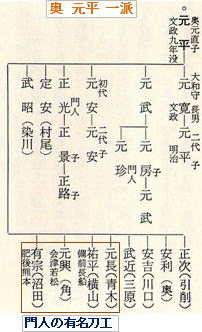 奥 元平 一派
元直子
元平
文政九年没
大和守 長男 二代 子
元寛 元平
文政 明治
元武 元房 元武
門人
元珍
初代 二代 子
元安 元安
門人 子
正光 正景 正路
定安(村尾)
武昭(染川)
正次(引削)
安利(奥)
安吉(川口)
武近(三原)
元長(青木)
祐平(横山)
備前長船
元興(角)
会津若松
有宗(沼田)
肥後熊本
門人の有名刀工